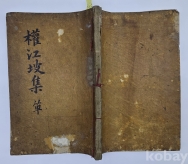 權江坡集 單
kobay